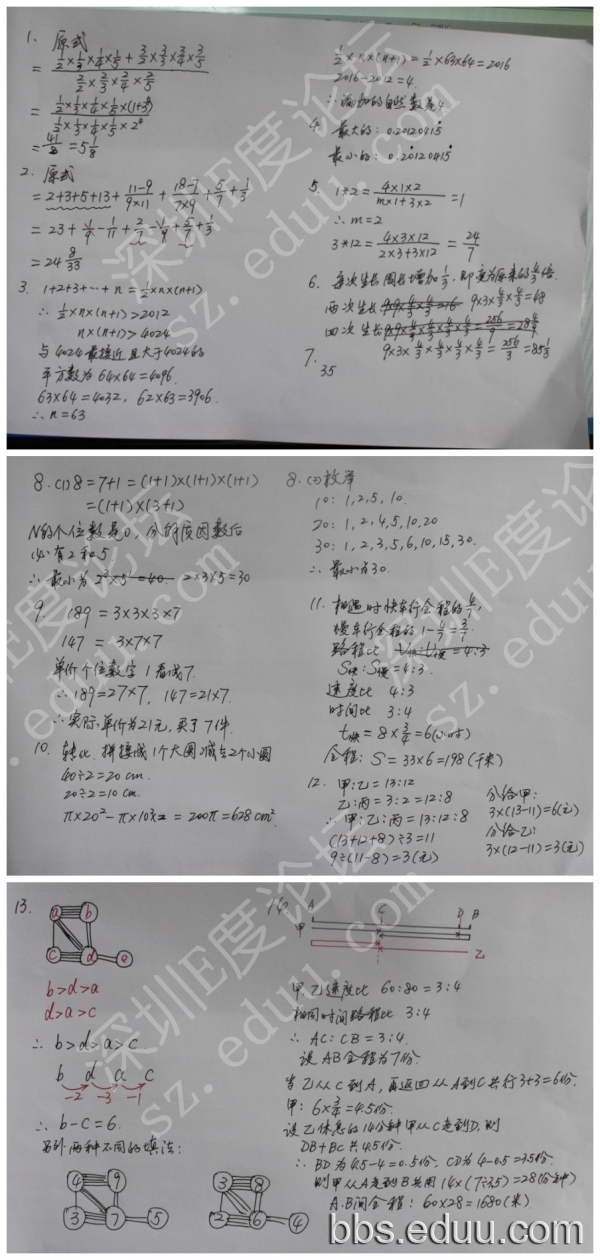 1. 原式
= (1/2×1/3×1/4×1/5 + 3/2×3/3×3/4×3/5) / (2/2×2/3×2/4×2/5)
= (1/2×1/3×1/4×1/5×(1+3⁴)) / (1/2×1/3×1/4×1/5×2⁴)
= 41/8 = 5 1/8
2. 原式
= 2+3+5+13+ (11-9)/(9×11) + (18-7)/(7×9) + 5/7 + 1/3
= 23 + 1/9 - 1/11 + 2/7 - 1/9 + 5/7 + 1/3
= 24 8/33
3. 1+2+3+…+n = 1/2×n×(n+1)
∴ 1/2×n×(n+1)>2012
n×(n+1)>4024
与4024最接近且大于4024的
平方数为 64×64=4096.
63×64=4032, 62×63=3906.
∴ n=63
1/2×n×(n+1) = 1/2×63×64=2016
2016-2012=4.
∴ 添加的自然数是4
4. 最大的: 0.20120415
最小的: 0.20120415
5. 1*2 = (4×1×2)/(m×1+3×2) =1
∴ m=2
3*12 = (4×3×12)/(2×3+3×12) = 24/7
6. 每次生长周长增加1/3, 即变为原来的4/3倍.
两次生长 9×3×4/3×4/3=48
四次生长
9×3×4/3×4/3×4/3×4/3 = 256/3 = 85 1/3
7.
35
8. (1) 8=7+1=(1+1)×(1+1)×(1+1)
=(1+1)×(3+1)
N的个位数是0, 分解质因数后
必有2和5.
∴ 最小为 2³×5¹=40 2×3×5=30
9. 189 = 3×3×3×7
147 = 3×7×7
单价个位数字1看成7.
∴ 189=27×7, 147=21×7.
∴ 实际单价为21元, 买了7件.
10. 转化. 拼接成1个大圆减去2个小圆
40÷2=20 cm.
20÷2=10 cm.
π×20²-π×10²×2 = 200π=628 cm²
8. (2) 枚举
10: 1,2,5,10.
20: 1,2,4,5,10,20
30: 1,2,3,5,6,10,15,30.
∴ 最小为30.
11. 相遇时快车行全程的4/7,
慢车行全程的1-4/7=3/7.
路程比
S快:S慢=4:3.
速度比 4:3
时间比 3:4
t快=8×3/4=6(小时)
全程: S=33×6=198(千米)
12. 甲:乙=13:12
乙:丙=3:2=12:8
∴ 甲:乙:丙=13:12:8
(13+12+8)÷3=11
9÷(11-8)=3(元)
分给甲:
3×(13-11)=6(元)
分给乙:
3×(12-11)=3(元)
13.
a b
c d e
b>d>a
d>a>c
∴ b>d>a>c.
b d a c
-2 -3 -1
∴ b-c=6.
另外两种不同的填法:
4 9
3 7 5
3 8
2 6 4
14.
A C D B
甲
乙
甲乙速度比 60:80=3:4
相同时间路程比 3:4
∴ AC:CB=3:4.
设AB全程为7份.
当乙从C到A, 再返回从A到C共行3+3=6份.
甲: 6×3/4=4.5份.
设乙休息的14分钟甲从C走到D, 则
DB+BC共4.5份.
∴ BD为4.5-4=0.5份, CD为4-0.5=3.5份.
则甲从A走到B共用14×(7÷3.5)=28(分钟)
A.B间全程: 60×28=1680(米)
深圳E度论坛
sz. eduu. com
bbs.eduu.com